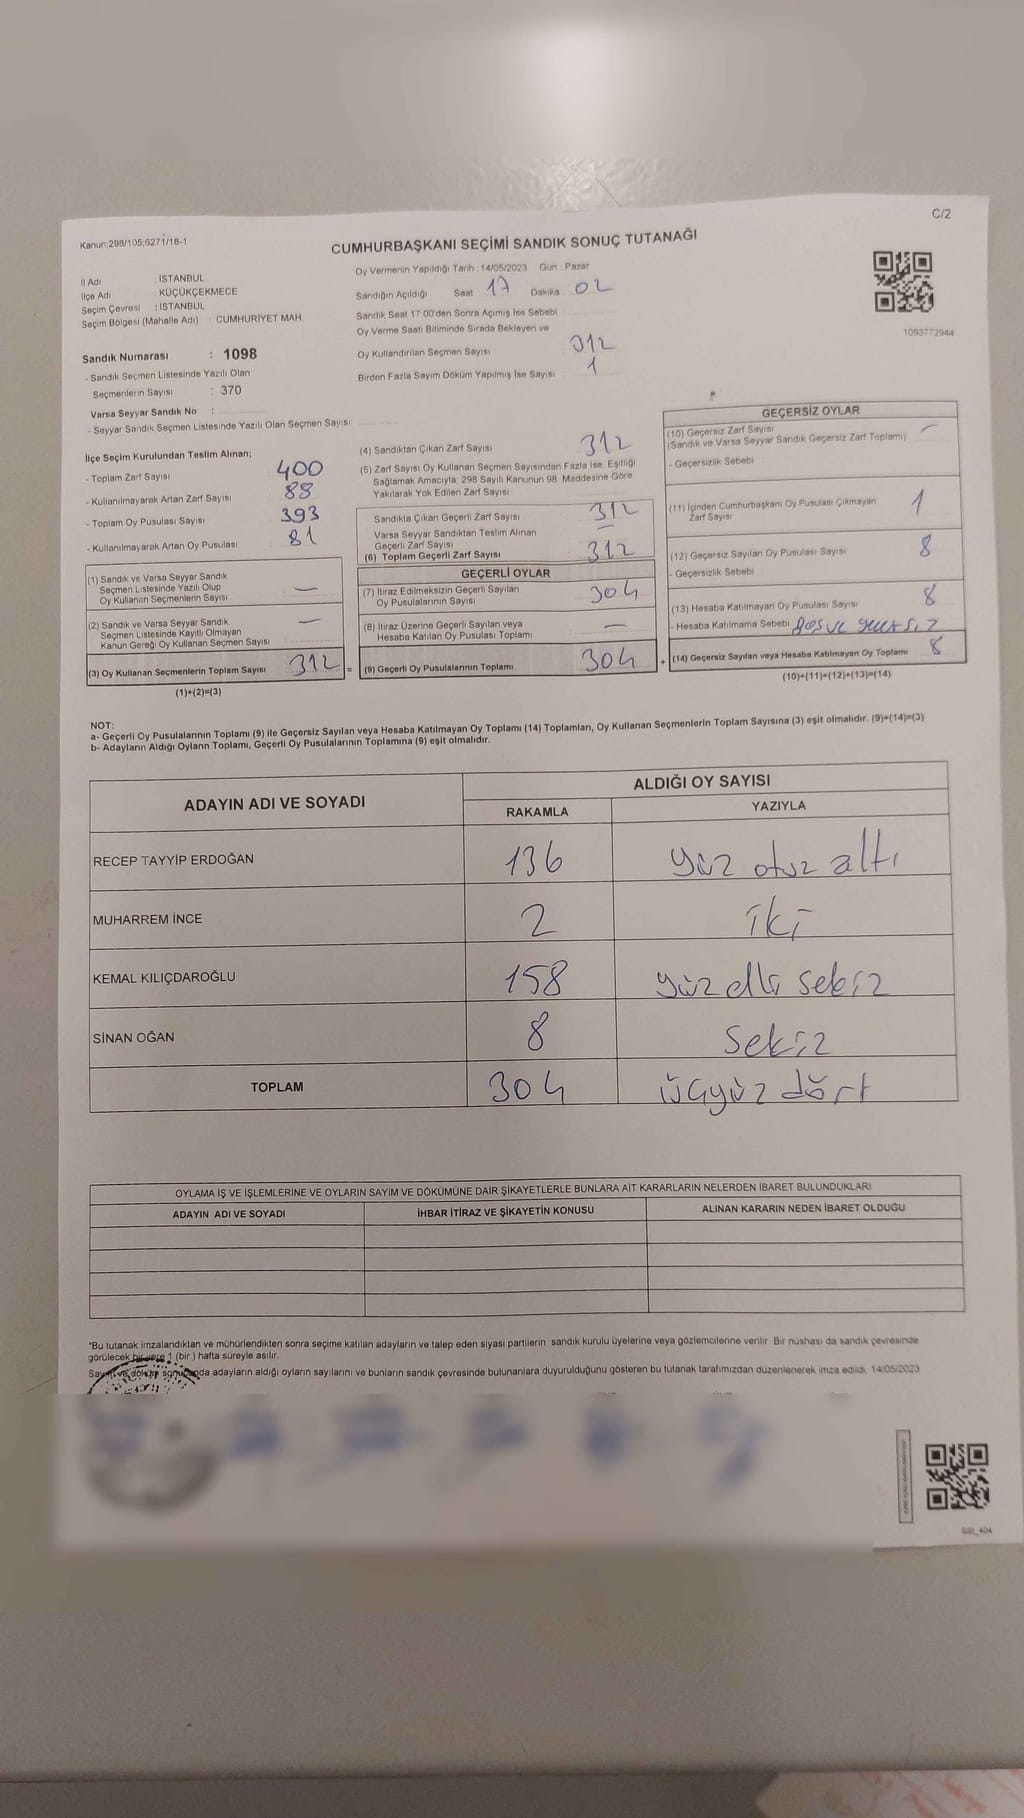 C/2
Kanun:298/105;6271/18-1
CUMHURBAŞKANI SEÇİMİ SANDIK SONUÇ TUTANAĞI
İl Adı : İSTANBUL
İlçe Adı : KÜÇÜKÇEKMECE
Seçim Çevresi : İSTANBUL
Seçim Bölgesi (Mahalle Adı) : CUMHURİYET MAH.
Sandık Numarası : 1098
- Sandık Seçmen Listesinde Yazılı Olan
Seçmenlerin Sayısı : 370
Varsa Seyyar Sandık No :
- Seyyar Sandık Seçmen Listesinde Yazılı Olan Seçmen Sayısı:
Oy Vermenin Yapıldığı Tarih : 14/05/2023 Gün : Pazar
Sandığın Açıldığı Saat 17 Dakika 02
Sandık Saat 17.00'den Sonra Açımış İse Sebebi
Oy Verme Saati Bitiminde Sırada Bekleyen ve
Oy Kullandırılan Seçmen Sayısı 312
Birden Fazla Sayım Döküm Yapılmış İse Sayısı 1
1093772944
İlçe Seçim Kurulundan Teslim Alınan;
- Toplam Zarf Sayısı 400
- Kullanılmayarak Artan Zarf Sayısı 88
- Toplam Oy Pusulası Sayısı 393
- Kullanılmayarak Artan Oy Pusulası 81
(1) Sandık ve Varsa Seyyar Sandık
Seçmen Listesinde Yazılı Olup
Oy Kullanan Seçmenlerin Sayısı —
(2) Sandık ve Varsa Seyyar Sandık
Seçmen Listesinde Kayıtlı Olmayan
Kanun Gereği Oy Kullanan Seçmen Sayısı —
(3) Oy Kullanan Seçmenlerin Toplam Sayısı 312 =
(1)+(2)=(3)
(4) Sandıktan Çıkan Zarf Sayısı 312
(5) Zarf Sayısı Oy Kullanan Seçmen Sayısından Fazla İse, Eşitliği
Sağlamak Amacıyla; 298 Sayılı Kanunun 98. Maddesine Göre
Yakılarak Yok Edilen Zarf Sayısı
Sandıkta Çıkan Geçerli Zarf Sayısı 312
Varsa Seyyar Sandıktan Teslim Alınan
Geçerli Zarf Sayısı —
(6) Toplam Geçerli Zarf Sayısı 312
GEÇERLİ OYLAR
(7) İtiraz Edilmeksizin Geçerli Sayılan
Oy Pusulalarının Sayısı 304
(8) İtiraz Üzerine Geçerli Sayılan veya
Hesaba Katılan Oy Pusulası Toplamı —
(9) Geçerli Oy Pusulalarının Toplamı 304 +
GEÇERSİZ OYLAR
(10) Geçersiz Zarf Sayısı —
(Sandık ve Varsa Seyyar Sandık Geçersiz Zarf Toplamı)
- Geçersizlik Sebebi
(11) İçinden Cumhurbaşkanı Oy Pusulası Çıkmayan
Zarf Sayısı 1
(12) Geçersiz Sayılan Oy Pusulası Sayısı 8
- Geçersizlik Sebebi
(13) Hesaba Katılmayan Oy Pusulası Sayısı 8
- Hesaba Katılmama Sebebi
(14) Geçersiz Sayılan veya Hesaba Katılmayan Oy Toplamı 8
(10)+(11)+(12)+(13)=(14)
NOT:
a- Geçerli Oy Pusulalarının Toplamı (9) ile Geçersiz Sayılan veya Hesaba Katılmayan Oy Toplamı (14) Toplamları, Oy Kullanan Seçmenlerin Toplam Sayısına (3) eşit olmalıdır. (9)+(14)=(3)
b- Adayların Aldığı Oyların Toplamı, Geçerli Oy Pusulalarının Toplamına (9) eşit olmalıdır.
ADAYIN ADI VE SOYADI
ALDIĞI OY SAYISI
RAKAMLA YAZIYLA
RECEP TAYYİP ERDOĞAN 136 yüz otuz altı
MUHARREM İNCE 2 iki
KEMAL KILIÇDAROĞLU 158 yüz elli sekiz
SİNAN OĞAN 8 sekiz
TOPLAM 304 üçyüz dört
OYLAMA İŞ VE İŞLEMLERİNE VE OYLARIN SAYIM VE DÖKÜMÜNE DAİR ŞİKAYETLERLE BUNLARA AİT KARARLARIN NELERDEN İBARET BULUNDUKLARI
ADAYIN ADI VE SOYADI İHBAR İTİRAZ VE ŞİKAYETİN KONUSU ALINAN KARARIN NEDEN İBARET OLDUĞU
*Bu tutanak imzalandıktan ve mühürlendikten sonra seçime katılan adayların ve talep eden siyasi partilerin sandık kurulu üyelerine veya gözlemcilerine verilir. Bir nüshası da sandık çevresinde
görülecek bir yere 1 (bir) hafta süreyle asılır.
Sayım ve döküm sonucunda adayların aldığı oyların sayılarını ve bunların sandık çevresinde bulunanlara duyurulduğunu gösteren bu tutanak tarafımızdan düzenlenerek imza edildi. 14/05/2023
SSI_404